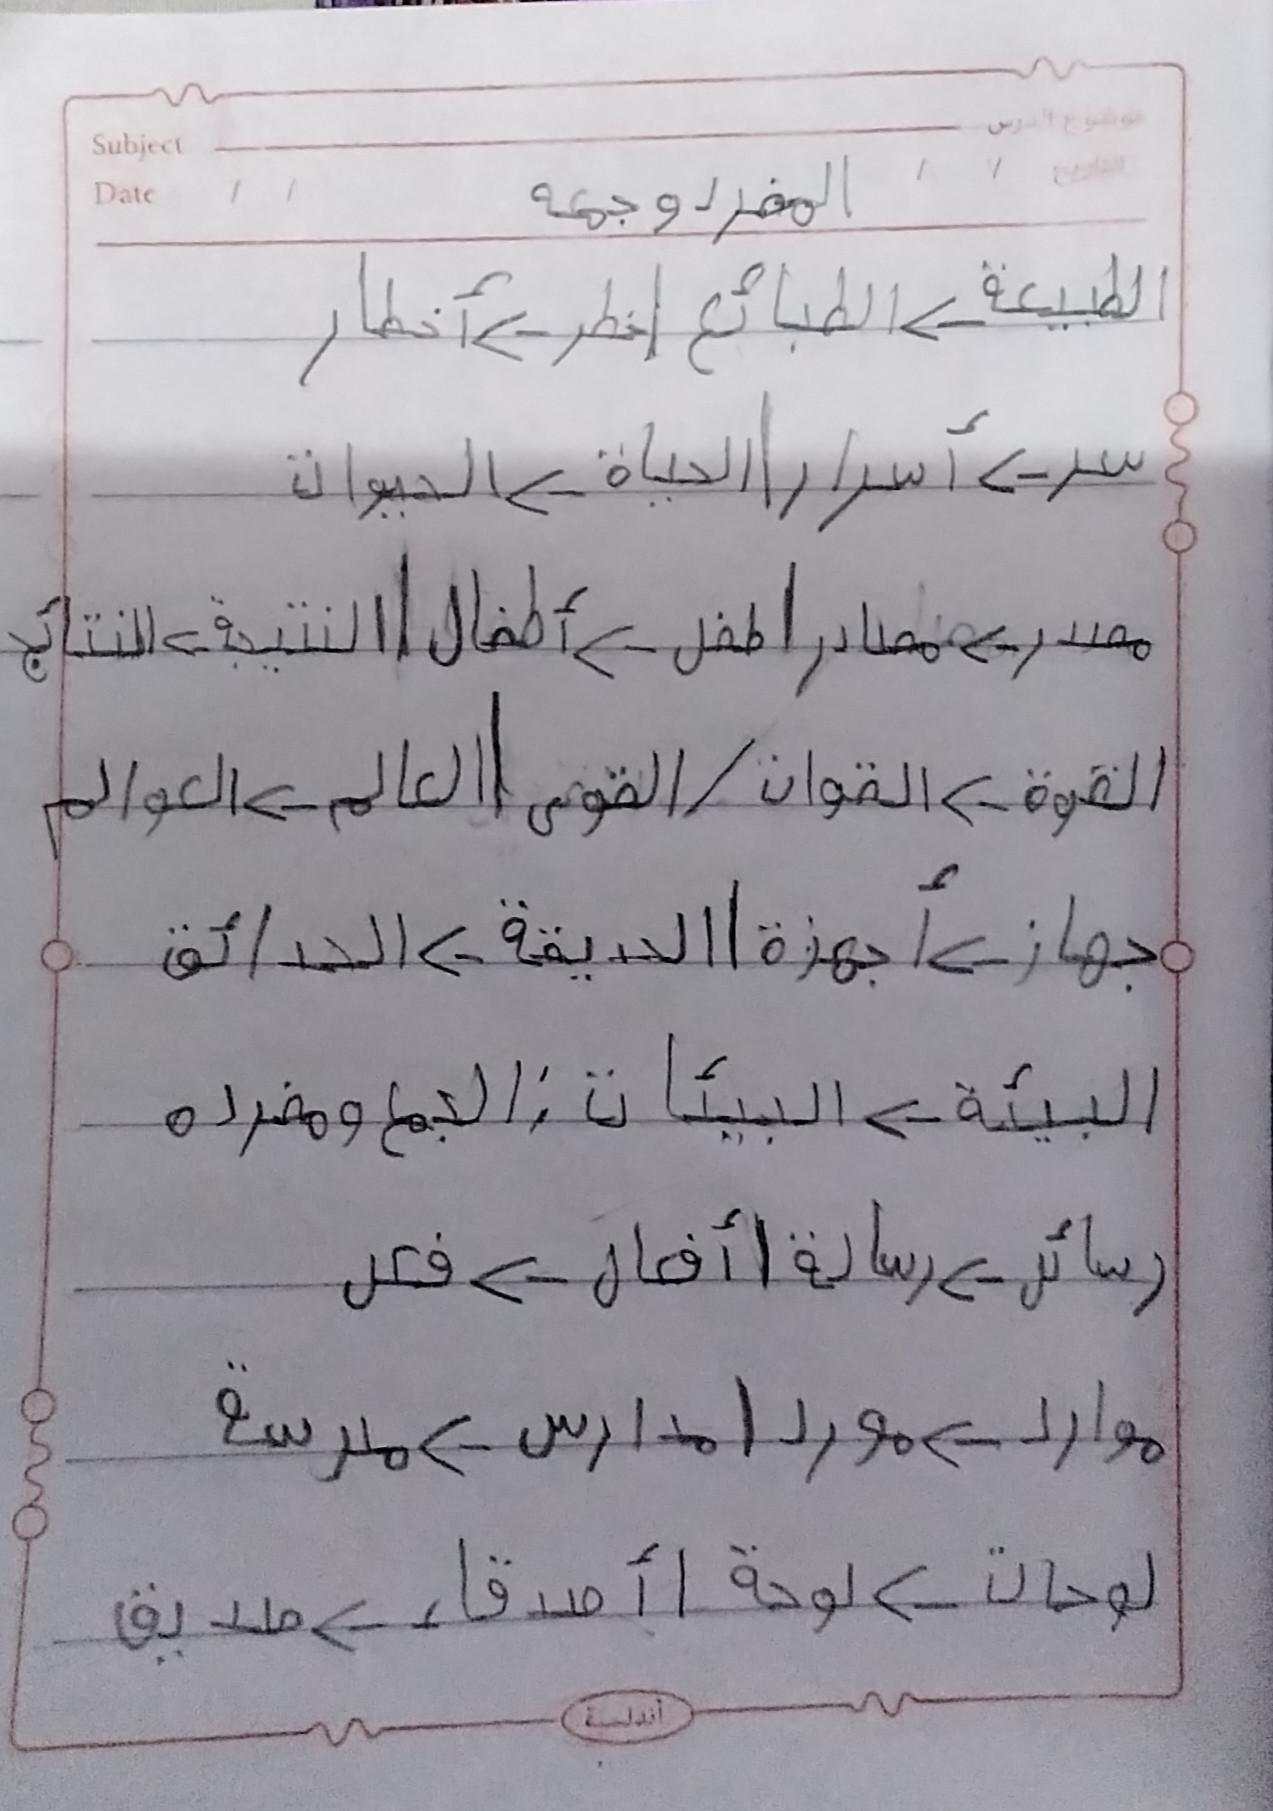 Subject موضوع الدرس
Date / / / / التاريخ
المفرد وجمعه
الطبيعة -> الطبائع | خطر -> أخطار
سر -> أسرار | الحياة -> الحيوات
مصدر -> مصادر | طفل -> أطفال | النتيجة -> النتائج
القوة -> القوات / القوى | العالم -> العوالم
جهاز -> أجهزة | الحديقة -> الحدائق
البيئة -> البيئات ; الجمع ومفرده
رسائل -> رسالة | أفعال -> فعل
موارد -> مورد | مدارس -> مدرسة
لوحات -> لوحة | أصدقاء -> صديق
أندلسية